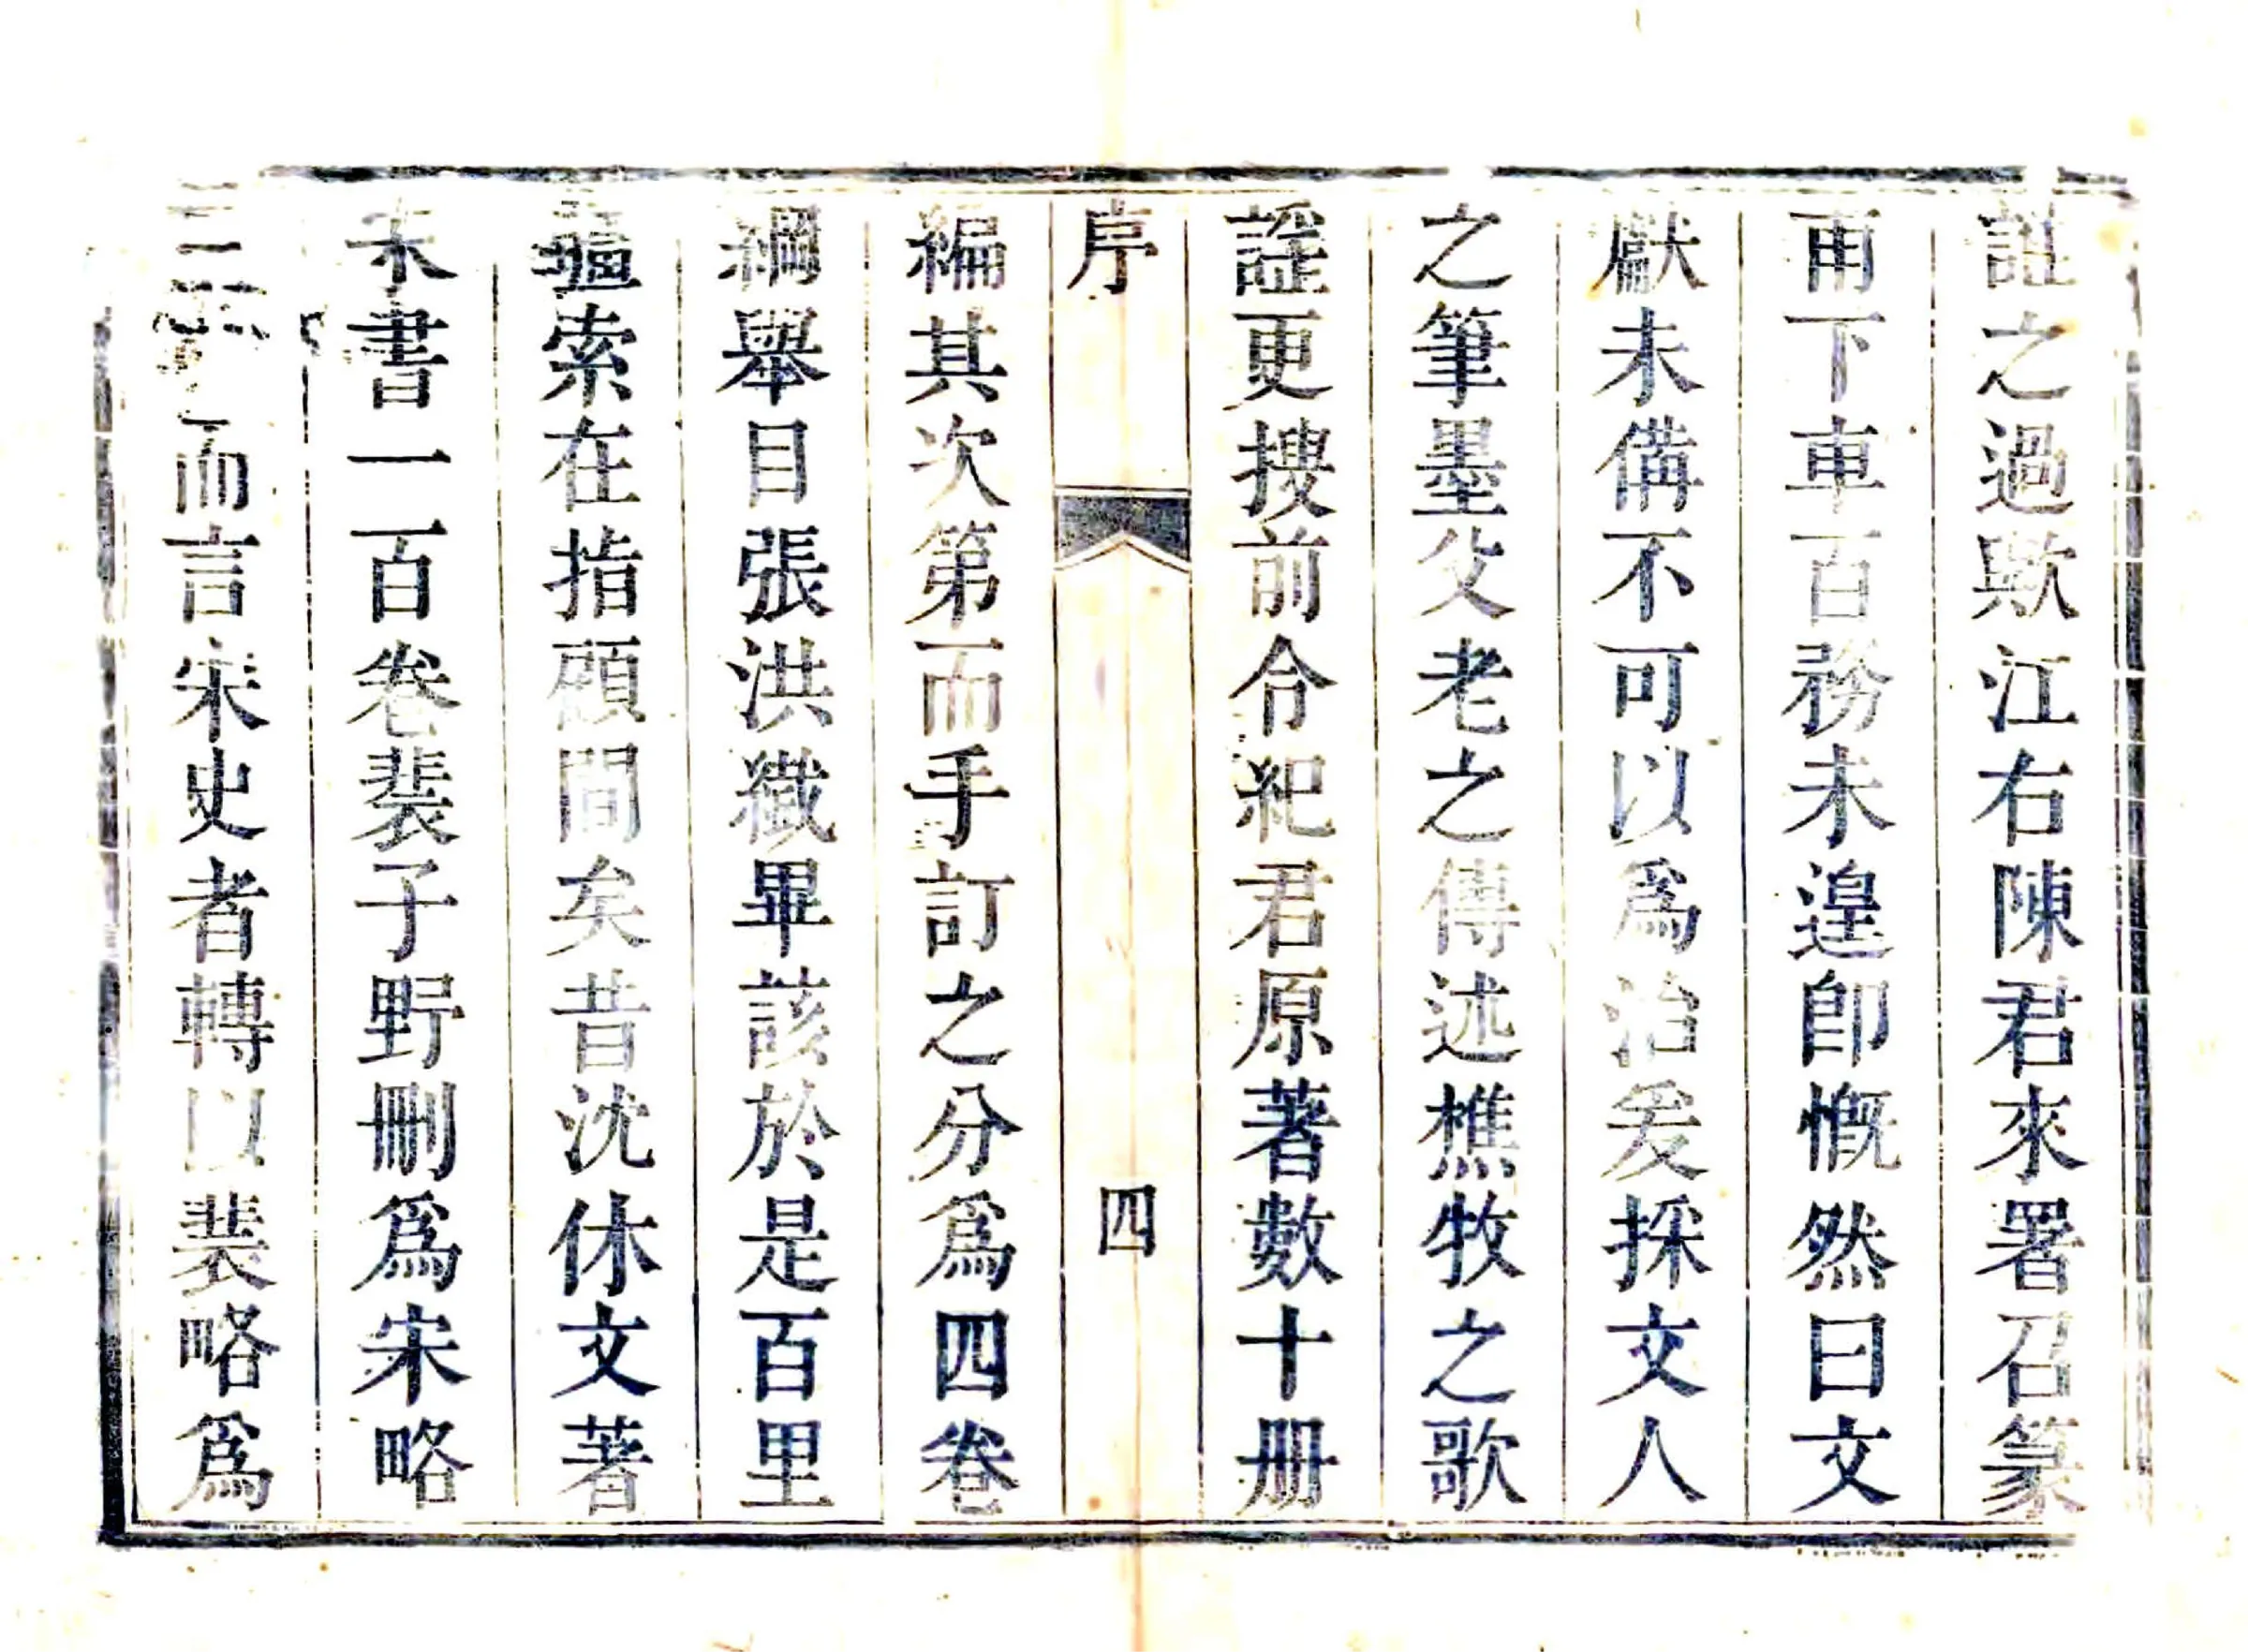 誰之過歟江右陳君來署召篆
甫下車百務未遑卽慨然曰文
獻未備不可以爲治爰採文人
之筆墨父老之傳述樵牧之歌
謡更搜前令紀君原著數十册
序
四
編其次第而手訂之分爲四卷
綱舉目張洪纖畢該於是百里
索在指顧間矣昔沈休文著
宋書一百卷裴子野刪爲宋略
而言宋史者轉以裴略爲